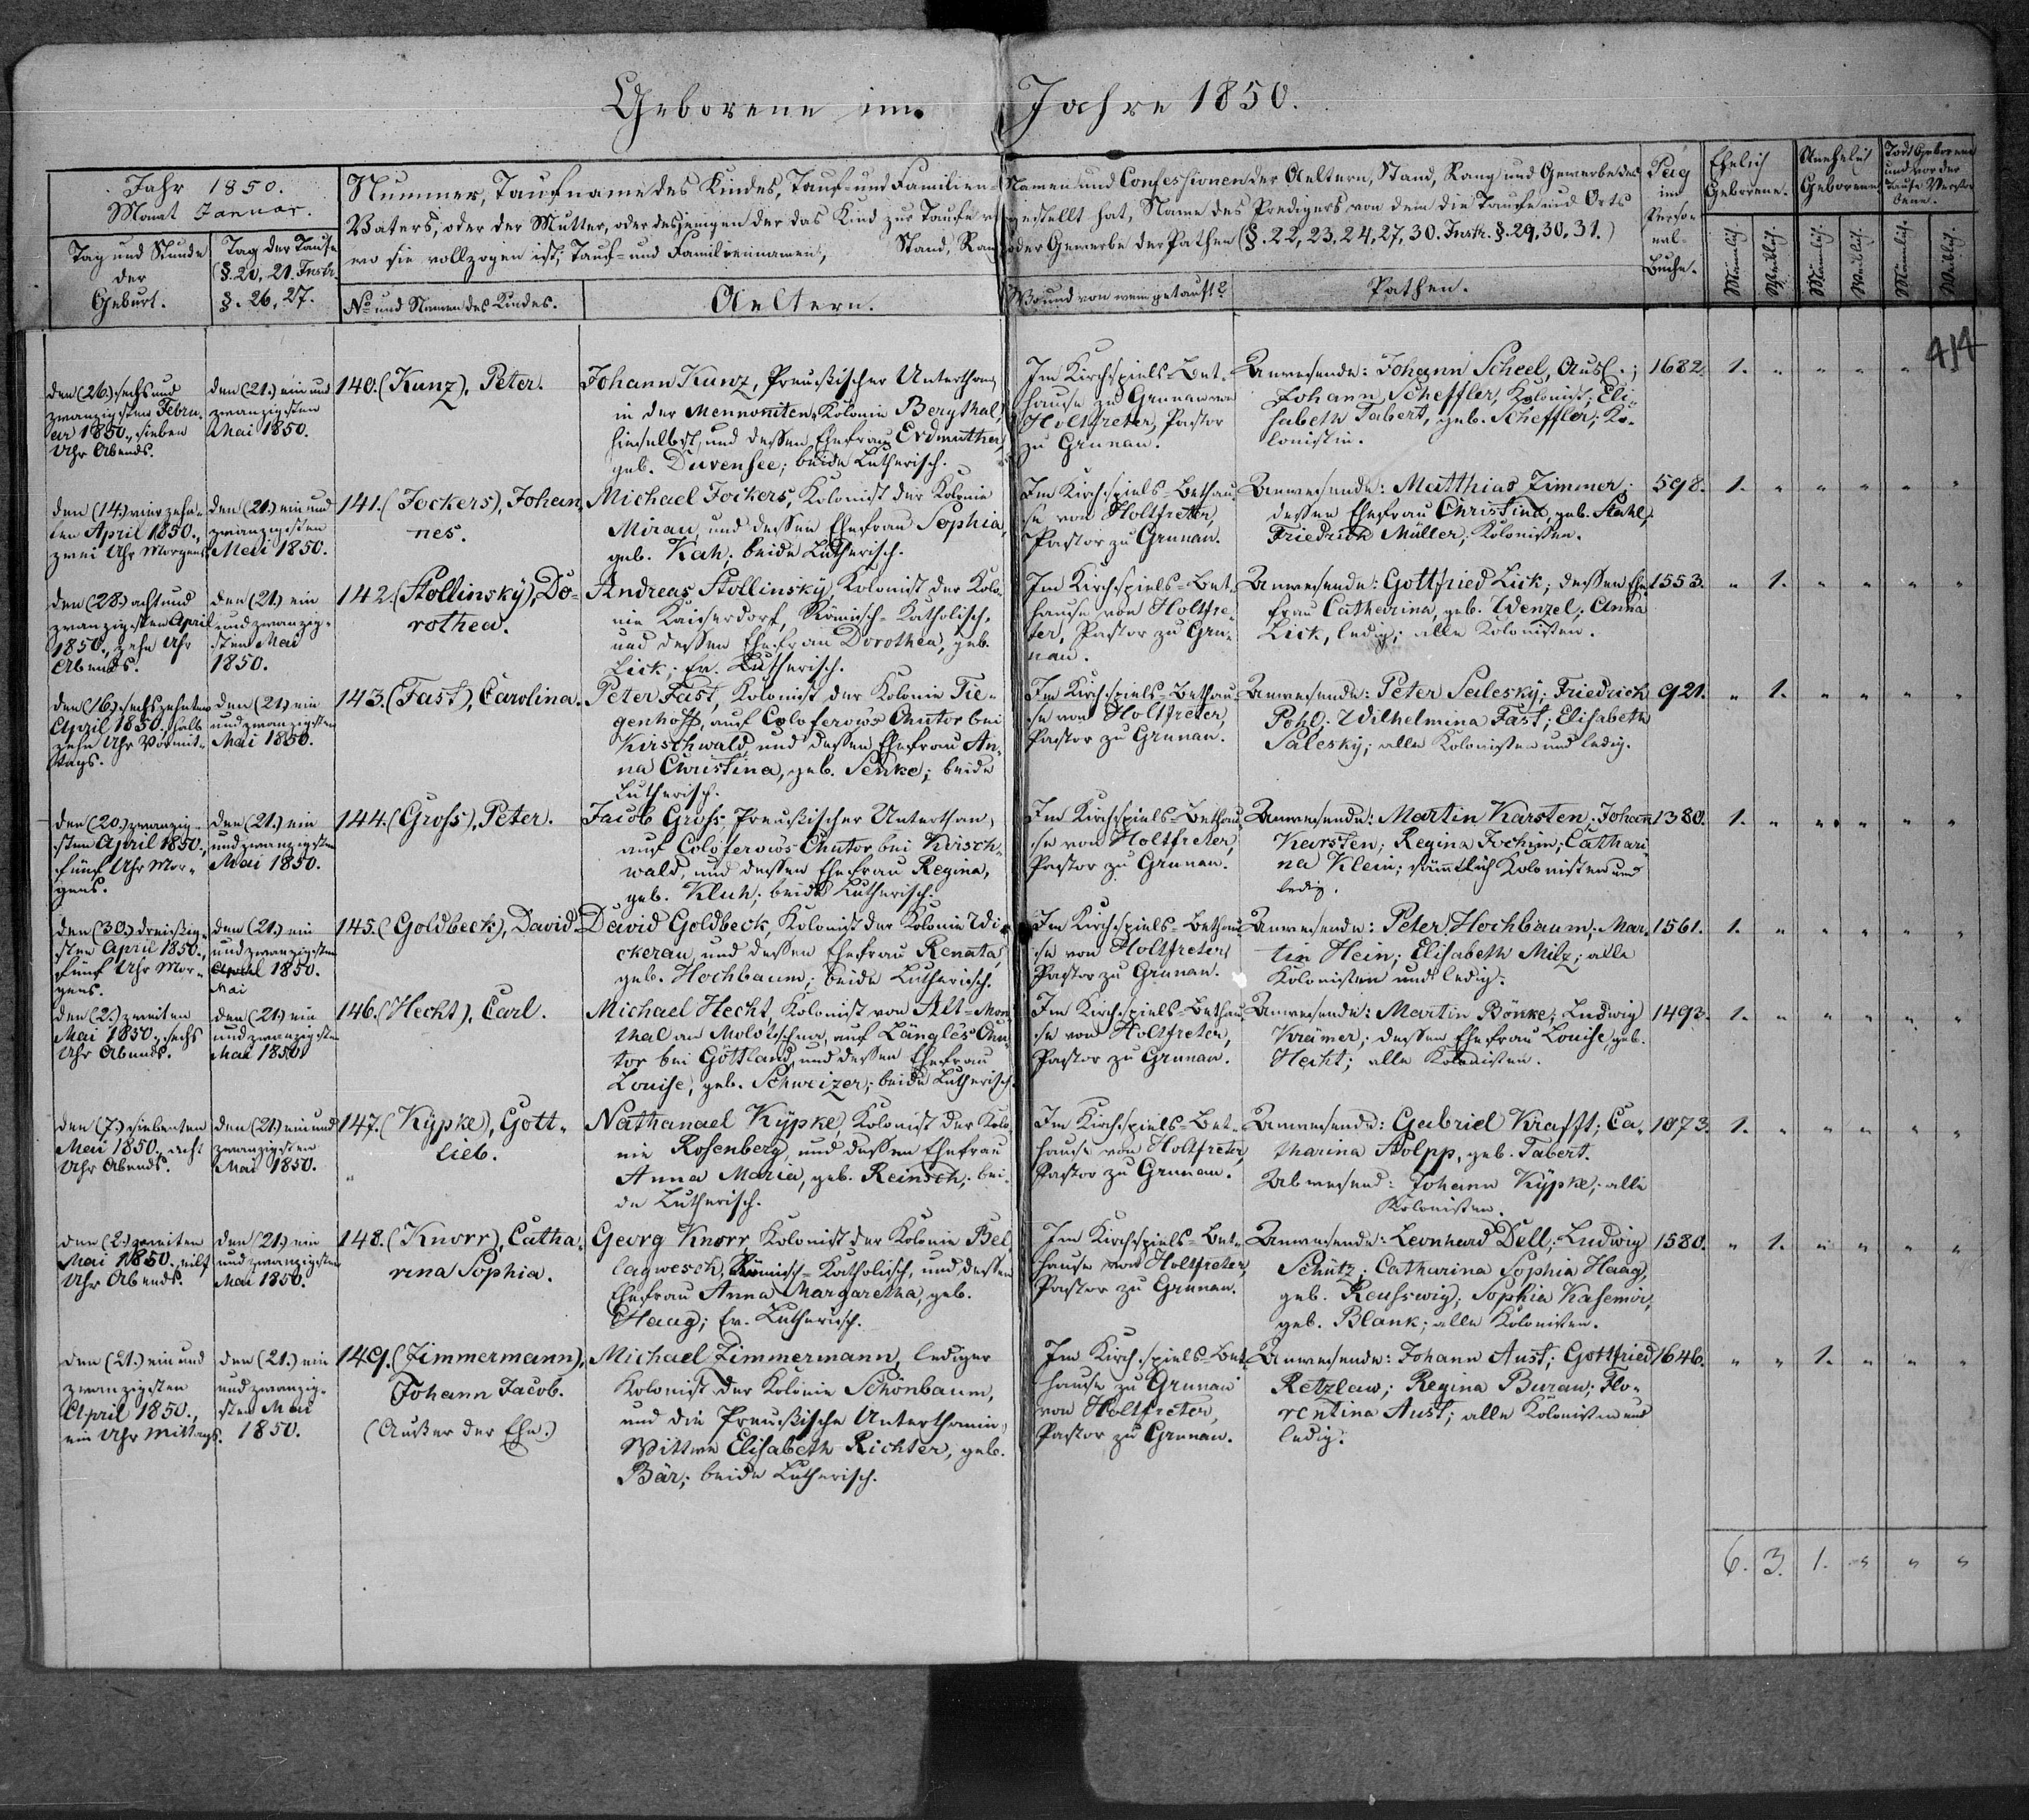 Geborene im Jahre 1850.
414
Jahr 1850.
Monat Januar.
Tag und Stunde
der
Geburt.
Tag der Taufe
(§. 20, 21. Instr.
§. 26, 27.
Nummer, Taufname des Kindes, Tauf- und Familien-Namen und Confessionen der Aeltern, Stand, Rang und Gewerbe des
Vaters, oder der Mutter, oder desjenigen der das Kind zur Taufe vorgestellt hat, Name des Predigers von dem die Taufe und Orts
wo sie vollzogen ist, Tauf- und Familiennamen, Stand, Rang oder Gewerbe der Pathen (§. 22, 23, 24, 27, 30. Instr. §. 29, 30, 31.)
No und Namen des Kindes.
Aeltern.
Wo und von wem getauft?
Pathen.
Pag
im
Perso-
nal-
Buche.
Ehelich
Geborene.
Unehelich
Geborene
Todt Geborene
und vor der
Taufe Verstor
bene.
Männlich.
Weiblich.
Männlich.
Weiblich.
Männlich.
Weiblich.
den (26.) sechs und
zwanzigsten Febru-
ar 1850., sieben
Uhr Abends.
den (21.) ein und
zwanzigsten
Mai 1850.
140. (Kunz), Peter.
Johann Kunz, Preußischer Unterthan,
in der Mennoniten-Kolonie Bergthal,
hieselbst, und dessen Ehefrau Erdmutha,
geb. Duvensee; beide Lutherisch.
Im Kirchspiels-Bet-
hause zu Grunau von
Holtfreter, Pastor
zu Grunau.
Anwesende: Johann Scheel, Ausl.;
Johann Scheffler, Kolonist; Eli-
sabeth Tabert, geb. Scheffler, Ko-
lonistin.
1682. 1. " " " "
den (14.) vierzehn-
ten April 1850.,
zwei Uhr Morgens.
den (21.) ein und
zwanzigsten
Mai 1850.
141. (Jockers), Johan-
nes.
Michael Jockers, Kolonist der Kolonie
Mirau, und dessen Ehefrau Sophia,
geb. Kah; beide Lutherisch.
Im Kirchspiels-Bethau-
se von Holtfreter,
Pastor zu Grunau.
Anwesende: Matthias Zimmer;
dessen Ehefrau Christine, geb. Stahl;
Friedrich Müller; Kolonisten.
598. 1. " " " " "
den (28.) acht und
zwanzigsten April
1850., zehn Uhr
Abends.
den (21.) ein
und zwanzig-
sten Mai
1850.
142. (Stollinsky), Do-
rothea.
Andreas Stollinsky, Kolonist der Kolo-
nie Kaiserdorf, Römisch-Katholisch,
und dessen Ehefrau Dorothea, geb.
Lick; Ev. Lutherisch.
Im Kirchspiels-Bet-
hause von Holtfre-
ter, Pastor zu Gru-
nau.
Anwesende: Gottfried Lick; dessen Ehe-
frau Catharina, geb. Wenzel; Anna
Lick, ledig; alle Kolonisten.
1553. " 1. " " " "
den (16.) sechszehnten
April 1850., halb
zehn Uhr Vormit-
tags.
den (21.) ein
und zwanzigsten
Mai 1850.
143. (Fast), Carolina.
Peter Fast, Kolonist der Kolonie Tie-
genhoff, auf Coloferow's Chutor bei
Kirschwald, und dessen Ehefrau An-
na Christina, geb. Senke; beide
Lutherisch.
Im Kirchspiels-Bethau-
se von Holtfreter,
Pastor zu Grunau.
Anwesende: Peter Salesky; Friedrich
Pohl; Wilhelmina Fast; Elisabeth
Salesky; alle Kolonisten und ledig.
921. " 1. " " " "
den (20.) zwanzig-
sten April 1850.,
fünf Uhr Mor-
gens.
den (21.) ein
und zwanzigsten
Mai 1850.
144. (Gross), Peter.
Jacob Gross, Preußischer Unterthan,
auf Coloferow's Chutor bei Kirsch-
wald, und dessen Ehefrau Regina,
geb. Kluh; beide Lutherisch.
Im Kirchspiels-Bethau-
se von Holtfreter,
Pastor zu Grunau.
Anwesende: Martin Karsten; Johann
Karsten; Regina Jochim; Cathari-
na Klein; sämmtlich Kolonisten und
ledig.
1380. 1. " " " " "
den (30.) dreißig-
sten April 1850.,
fünf Uhr Mor-
gens.
den (21.) ein
und zwanzigsten
April 1850.
Mai
145. (Goldbeck), David.
David Goldbeck, Kolonist der Kolonie Wi-
ckerau, und dessen Ehefrau Renata,
geb. Hochbaum; beide Lutherisch.
Im Kirchspiels-Bethau-
se von Holtfreter,
Pastor zu Grunau.
Anwesende: Peter Hochbaum; Mar-
tin Hein; Elisabeth Milz; alle
Kolonisten und ledig.
1561. 1. " " " " "
den (2.) zweiten
Mai 1850., sechs
Uhr Abends.
den (21.) ein
und zwanzigsten
Mai 1850.
146. (Hecht), Carl.
Michael Hecht, Kolonist von Alt-Mon-
thal an Molotschna, auf Längle's Chu-
tor bei Göttland, und dessen Ehefrau
Louise, geb. Schweizer; beide Lutherisch.
Im Kirchspiels-Bethau-
se von Holtfreter,
Pastor zu Grunau.
Anwesende: Martin Bönke; Ludwig
Krämer; dessen Ehefrau Louise, geb.
Hecht; alle Kolonisten.
1493. 1. " " " " "
den (7.) siebenten
Mai 1850., acht
Uhr Abends.
den (21.) ein und
zwanzigsten
Mai 1850.
147. (Kÿpke), Gott-
lieb.
Nathanael Kÿpke, Kolonist der Kolo-
nie Rosenberg, und dessen Ehefrau
Anna Maria, geb. Reinsch; bei-
de Lutherisch.
Im Kirchspiels-Bet-
hause von Holtfreter,
Pastor zu Grunau.
Anwesende: Gabriel Krafft; Ca-
tharina Stolpp, geb. Tabert.
Abwesend: Johann Kÿpke; alle
Kolonisten.
1073. 1. " " " " "
den (2.) zweiten
Mai 1850., eilf
Uhr Abends.
den (21.) ein
und zwanzigsten
Mai 1850.
148. (Knorr), Catha-
rina Sophia.
Georg Knorr, Kolonist der Kolonie Bel-
lagwesch, Römisch-Katholisch, und dessen
Ehefrau Anna Margaretha, geb.
Haag; Ev. Lutherisch.
Im Kirchspiels-Bet-
hause von Holtfreter,
Pastor zu Grunau.
Anwesende: Leonhard Dell; Ludwig
Schütz; Catharina Sophia Haag,
geb. Reusswig; Sophia Kasemir,
geb. Blank; alle Kolonisten.
1580. " 1. " " " "
den (21.) ein und
zwanzigsten
April 1850.,
ein Uhr Mittags.
den (21.) ein
und zwanzig-
sten Mai
1850.
149. (Zimmermann),
Johann Jacob.
(Außer der Ehe.)
Michael Zimmermann, lediger
Kolonist der Kolonie Schönbaum,
und die Preußische Unterthanin,
Wittwe Elisabeth Richter, geb.
Bär; beide Lutherisch.
Im Kirchspiels-Bet-
hause zu Grunau
von Holtfreter,
Pastor zu Grunau.
Anwesende: Johann Aust; Gottfried
Retzlaw; Regina Burau; Flo-
rentina Aust; alle Kolonisten und
ledig.
1646. " " 1. " " "
6. 3. 1. " " "